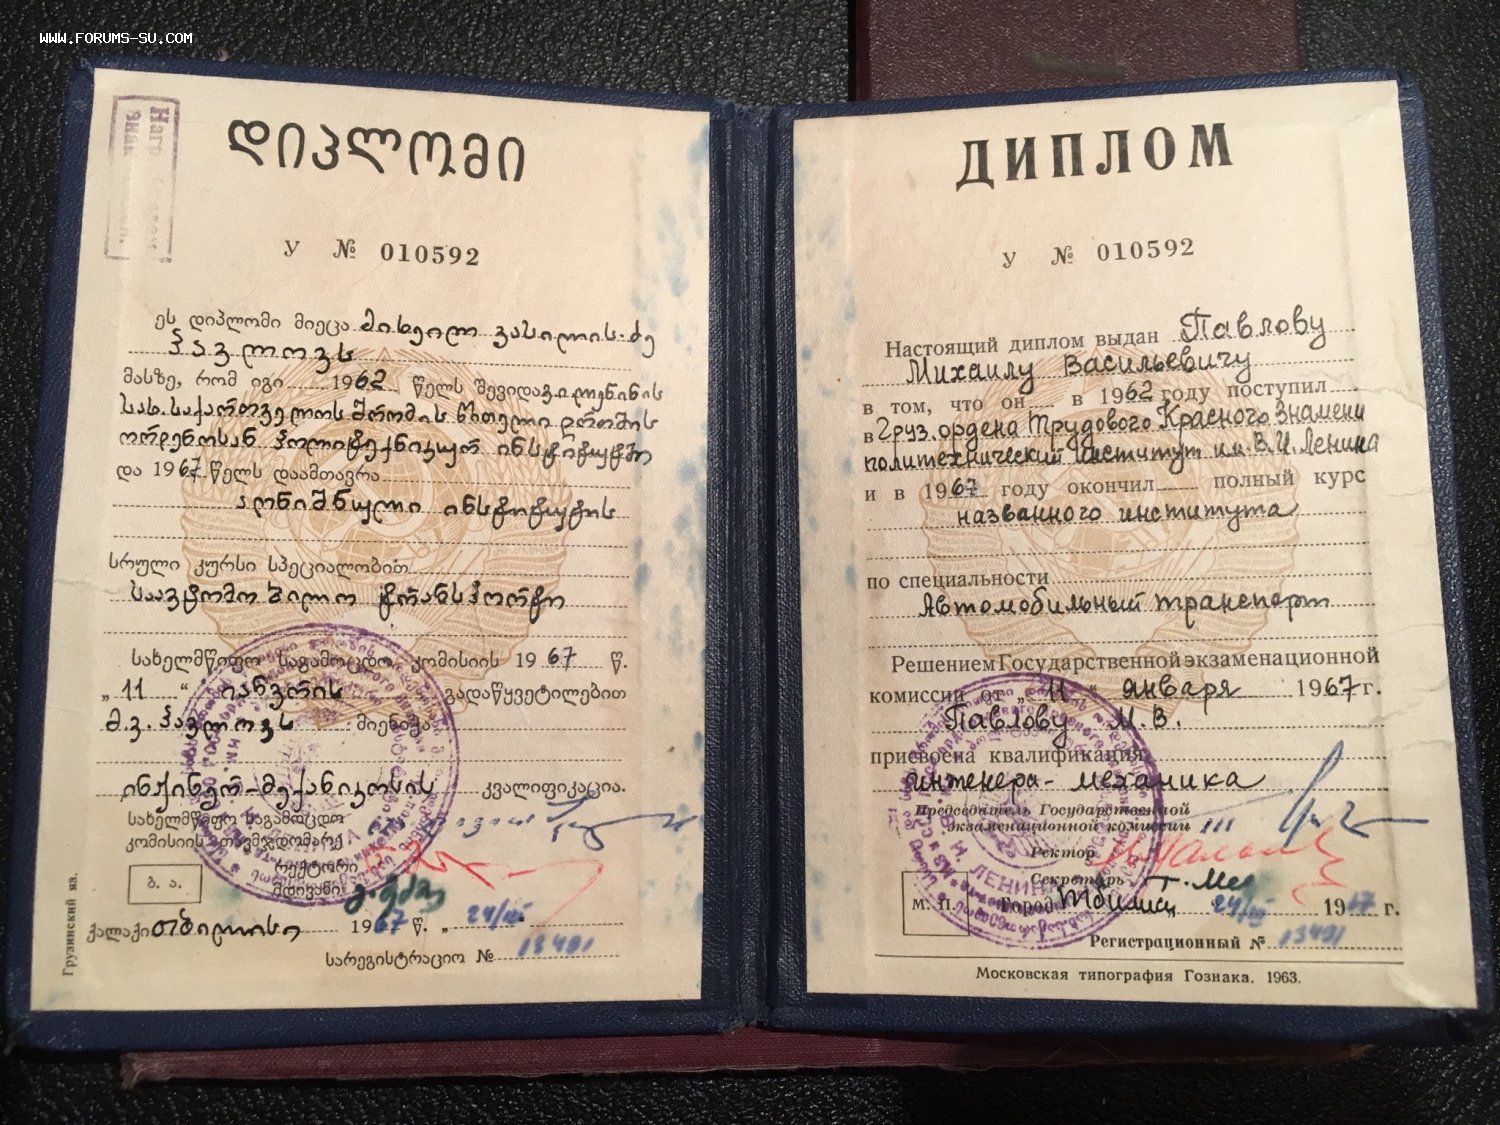 WWW.FORUMS-SU.COM
Нагр
знак
დიპლომი
У № 010592
ეს დიპლომი მიეცა მიხეილ ვასილის-ძე
პავლოვს
მასზე, რომ იგი 1962 წელს შევიდა ვ.ი. ლენინის
სახ. საქართველოს შრომის წითელი დროშის
ორდენოსან პოლიტექნიკურ ინსტიტუტში
და 1967 წელს დაამთავრა
აღნიშნული ინსტიტუტის
სრული კურსი სპეციალობით
საავტომობილო ტრანსპორტი
სახელმწიფო საგამოცდო კომისიის 1967 წ.
„11“ იანვრის გადაწყვეტილებით
მ.ვ. პავლოვს მიენიჭა
ინჟინერ-მექანიკოსის კვალიფიკაცია.
სახელმწიფო საგამოცდო
კომისიის თავმჯდომარე
რექტორი
მდივანი
ბ. ა.
ქალაქი თბილისი 1967 წ. „ 24/III
სარეგისტრაციო № 13401
Грузинский яз.
ДИПЛОМ
У № 010592
Настоящий диплом выдан Павлову
Михаилу Васильевичу
в том, что он в 1962 году поступил
в Груз. ордена Трудового Красного Знамени
политехнический институт им. В.И. Ленина
и в 1967 году окончил полный курс
названного института
по специальности
Автомобильный транспорт
Решением Государственной экзаменационной
комиссии от „11“ января 1967 г.
Павлову М.В.
присвоена квалификация
инженера-механика
Председатель Государственной
экзаменационной комиссии
Ректор
Секретарь
М. П.
Город Тбилиси 24/III 1967 г.
Регистрационный № 13401
Московская типография Гознака. 1963.